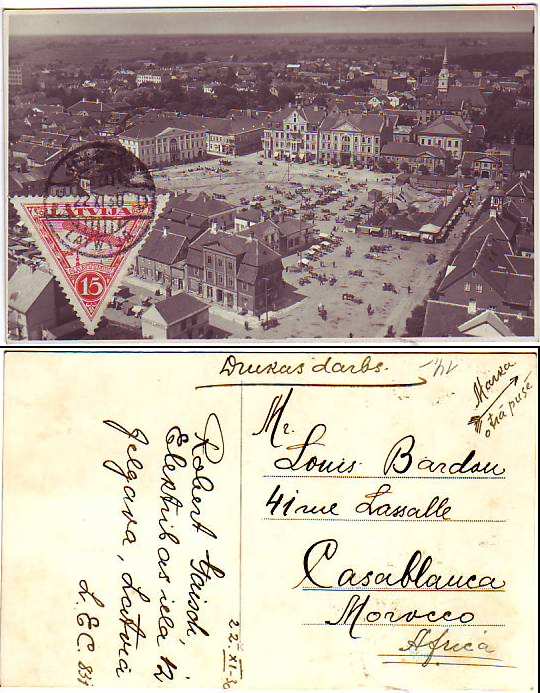 LATVIJA
15
22.XI.30
LATVIJA
Drukas darbs.
Marka
otrā pusē
Mr.
Louis Bardou
41 rue Lassalle
Casablanca
Morocco
Africa
Robert
Elektribas iela 12
Jelgava, Latvia
L.E.C. 831
22-XI-30